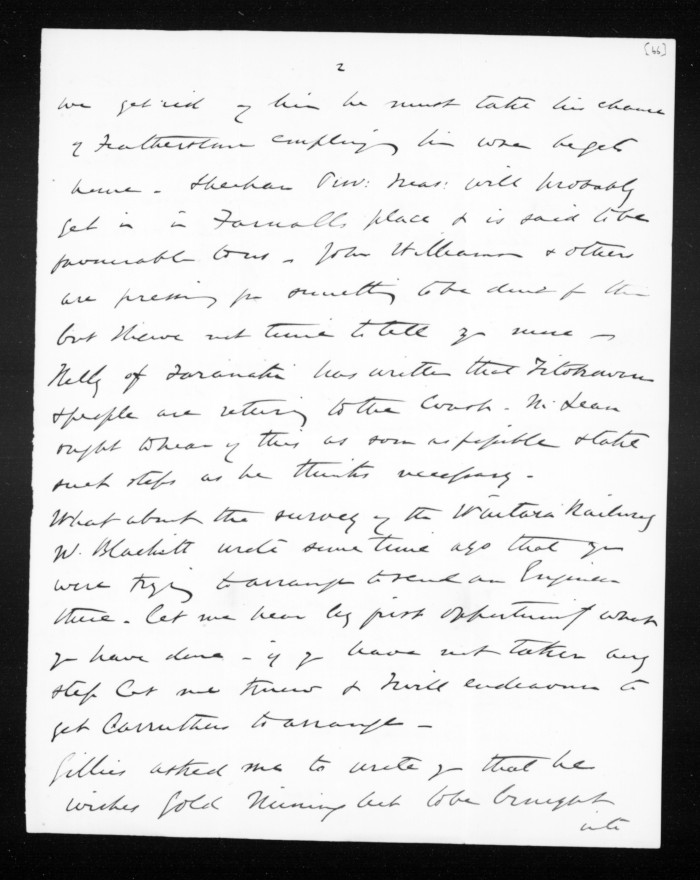 [66]
2
we get rid of him he must take his chance
of Featherston employing him when he gets
home - Sheehan Prov: Meas: will probably
get in in Farnalls place & is said to be
favourable to us - John Williamson & others
are pressing for something to be done for him
but I have not time to tell you more -
Kelly of Taranaki has written that Titokowaru
& people are returning to the Coast. McLean
ought to hear of this as soon as possible & take
such steps as he thinks necessary -
What about the survey of the Waitara Railway
W. Blackett wrote some time ago that you
were trying to arrange to send an Engineer
there. Let me hear by first opportunity what
you have done - if you have not taken any
step let me know & I will endeavour to
get Carruthers to arrange -
Gillies asked me to write you that he
wishes Gold Mining to be brought
into